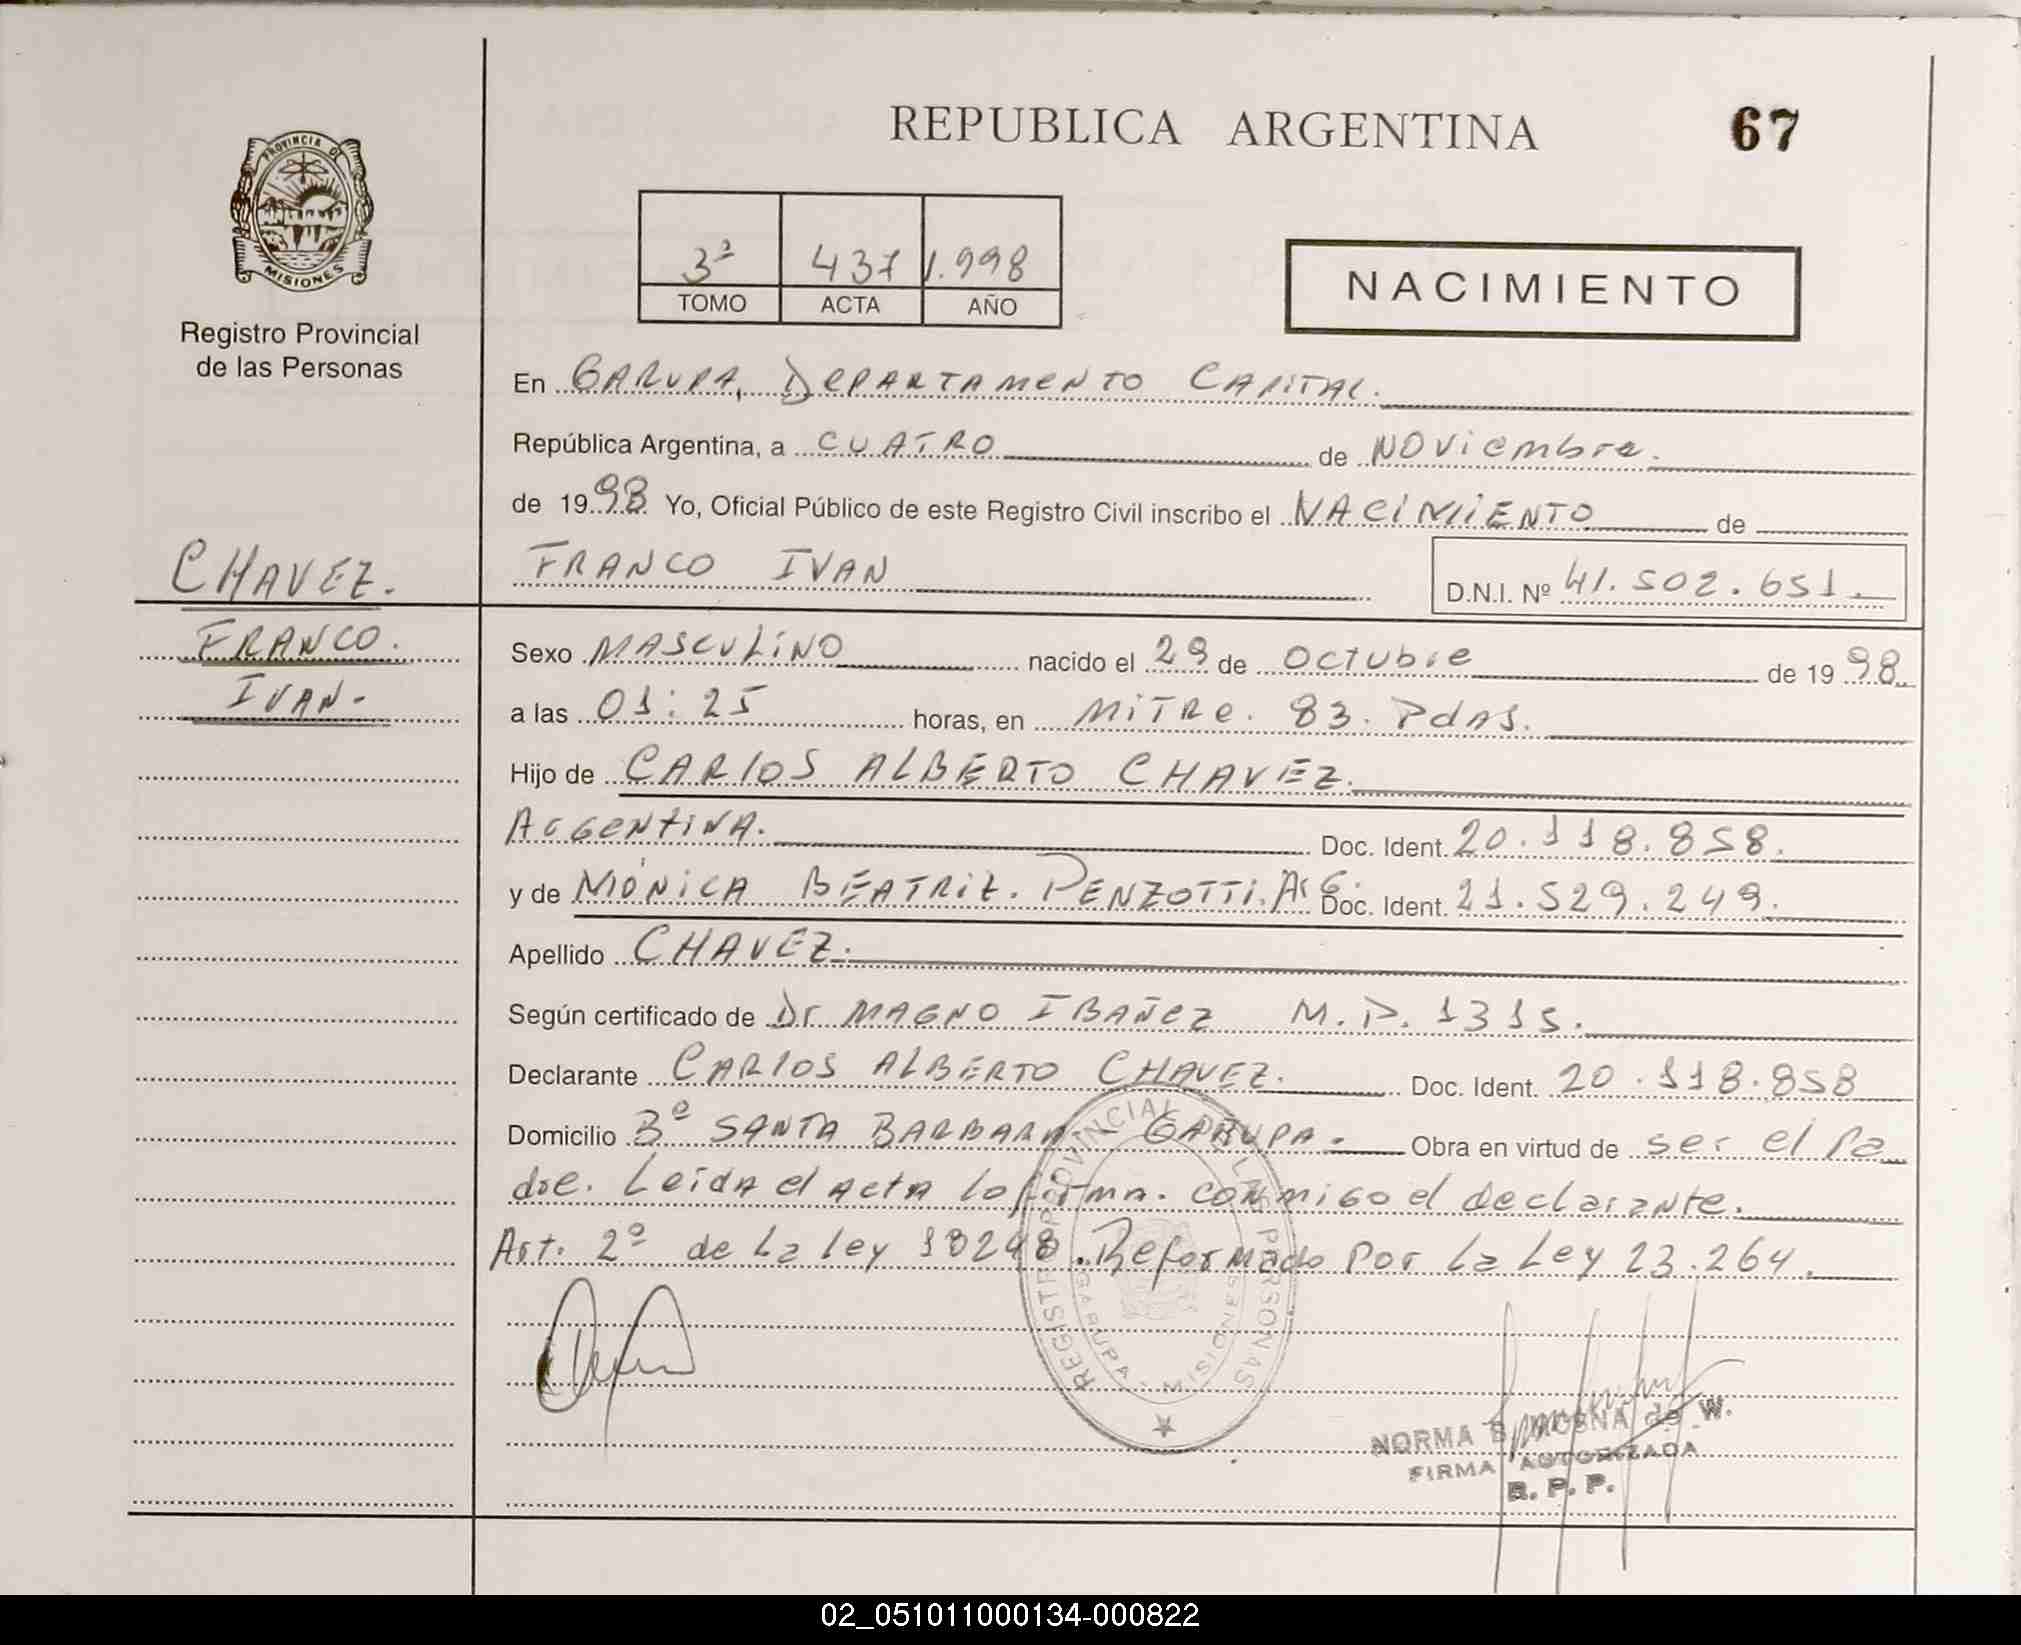 REPUBLICA ARGENTINA
67
PROVINCIA DE
MISIONES
Registro Provincial
de las Personas
3ª 437 1.998
TOMO ACTA AÑO
NACIMIENTO
En GARUPA, DEPARTAMENTO CAPITAL.
República Argentina, a CUATRO de NOViembre.
de 1998 Yo, Oficial Público de este Registro Civil inscribo el NACIMIENTO de
CHAVEZ.
FRANCO IVAN
D.N.I. Nº 41.502.651.
FRANCO.
IVAN.-
Sexo MASCULINO nacido el 29 de Octubre de 1998.
a las 01:25 horas, en MITRE. 83. Pdas.
Hijo de CARLOS ALBERTO CHAVEZ.
ARGENTINA. Doc. Ident. 20.118.858.
y de MÓNICA BEATRIZ. PENZOTTI. Arg. Doc. Ident. 21.529.249.
Apellido CHAVEZ.
Según certificado de Dr MAGNO IBAÑEZ M.P. 1315.
Declarante CARLOS ALBERTO CHAVEZ. Doc. Ident. 20.118.858
Domicilio Bº SANTA BARBARA - GARUPA. Obra en virtud de ser el Pa
dre. Leída el acta lo firma. conmigo el declarante.
Art. 2º de La Ley 18248. Reformado Por La Ley 23.264.
REGISTRO PROVINCIAL DE LAS PERSONAS
GARUPA - MISIONES
NORMA de W.
FIRMA AUTORIZADA
R. P. P.
02_051011000134-000822